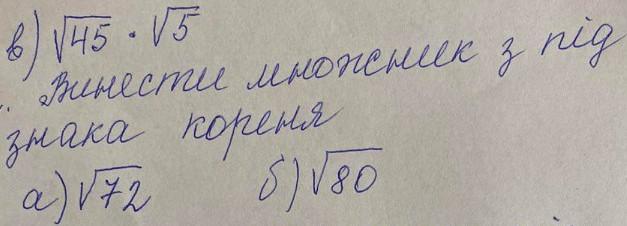 в) √45 · √5
Винести множник з під
знака кореня
а) √72 б) √80